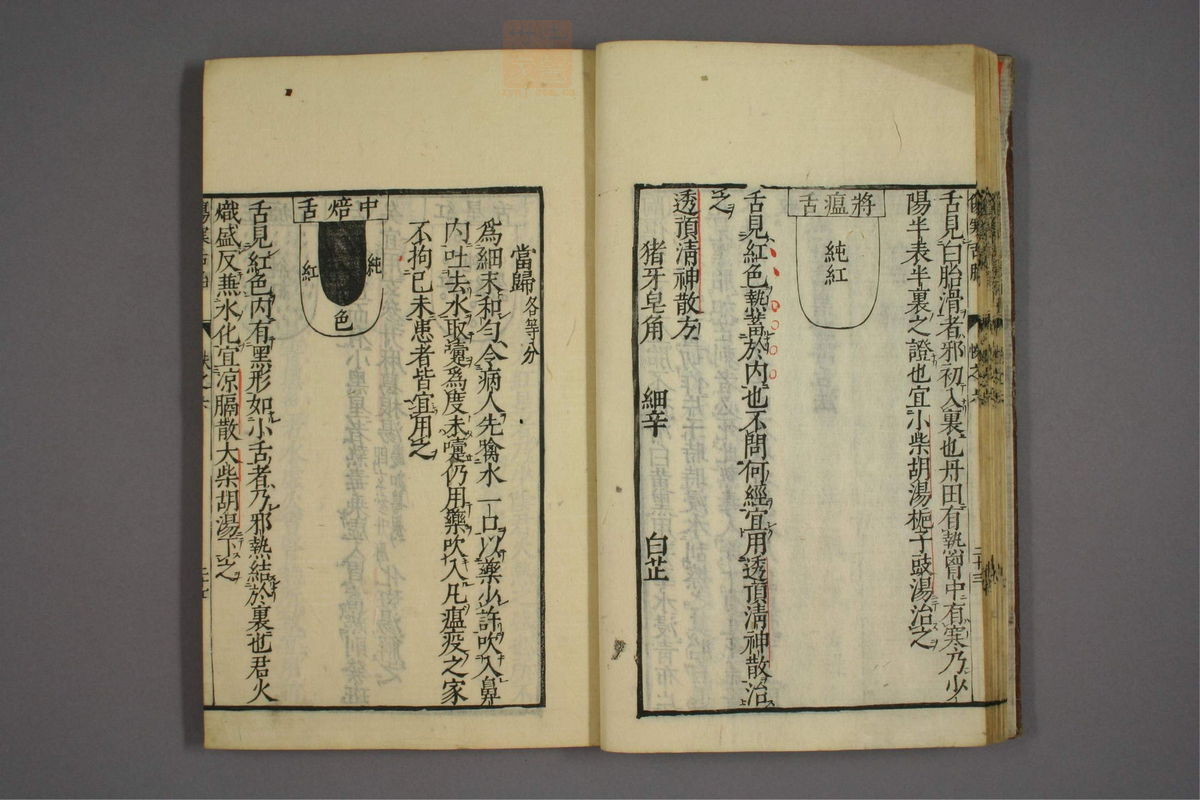 舌見白胎滑者邪初入裏也丹田有熱胷中有寒乃少
陽半表半裏之證也宜小柴胡湯梔子豉湯治之
將瘟舌
純紅
舌見紅色熱蓄於內也不問何經宜用透頂清神散治
之
透頂清神散方
猪牙皂角 細辛 白芷
當歸各等分
爲細末和勻令病人先噙水一口以藥少許吹入鼻
內吐去水取嚏爲度未嚏仍用藥吹入凡瘟疫之家
不拘已未患者皆宜用之
中焙舌
純
紅
色
舌見紅色內有黑形如小舌者乃邪熱結於裏也君火
熾盛反兼水化宜凉膈散大柴胡湯下之